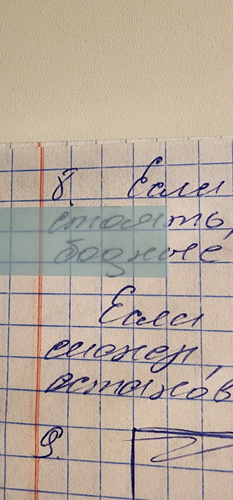 8. Если
стоять,
бодные
Если
может,
останов
9.